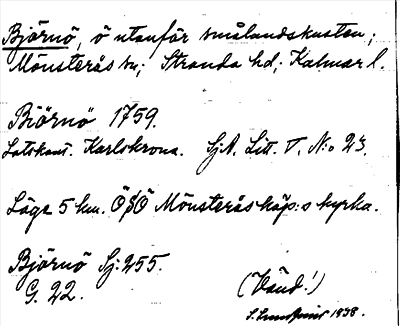 Björnö, ö utanför smålandskusten;
Mönsterås sn; Stranda hd; Kalmar l.
Biörnö 1759.
Lotskont. Karlskrona. Sj.A. Litt. V, N:o 23.
Läge 5 km. ÖSÖ Mönsterås köp:s kyrka.
Björnö Sj: 255.
G. 22.
(Vänd!)
1938.